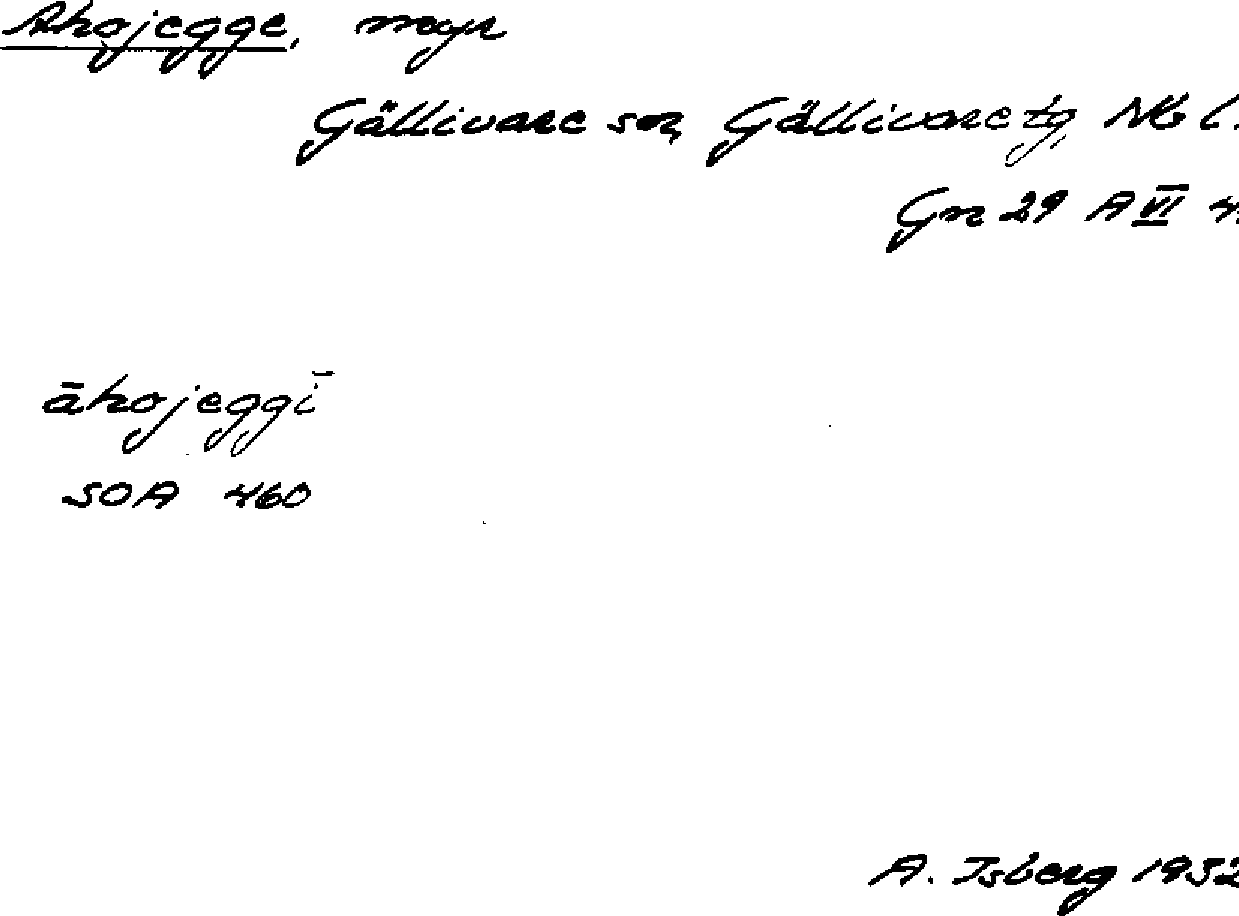 Ahojegge, myr
Gällivare sn, Gällivare tg, Nb l.
Gn 29 A VI 4.
āhojeggī
SOA 460
A. Isberg 1932